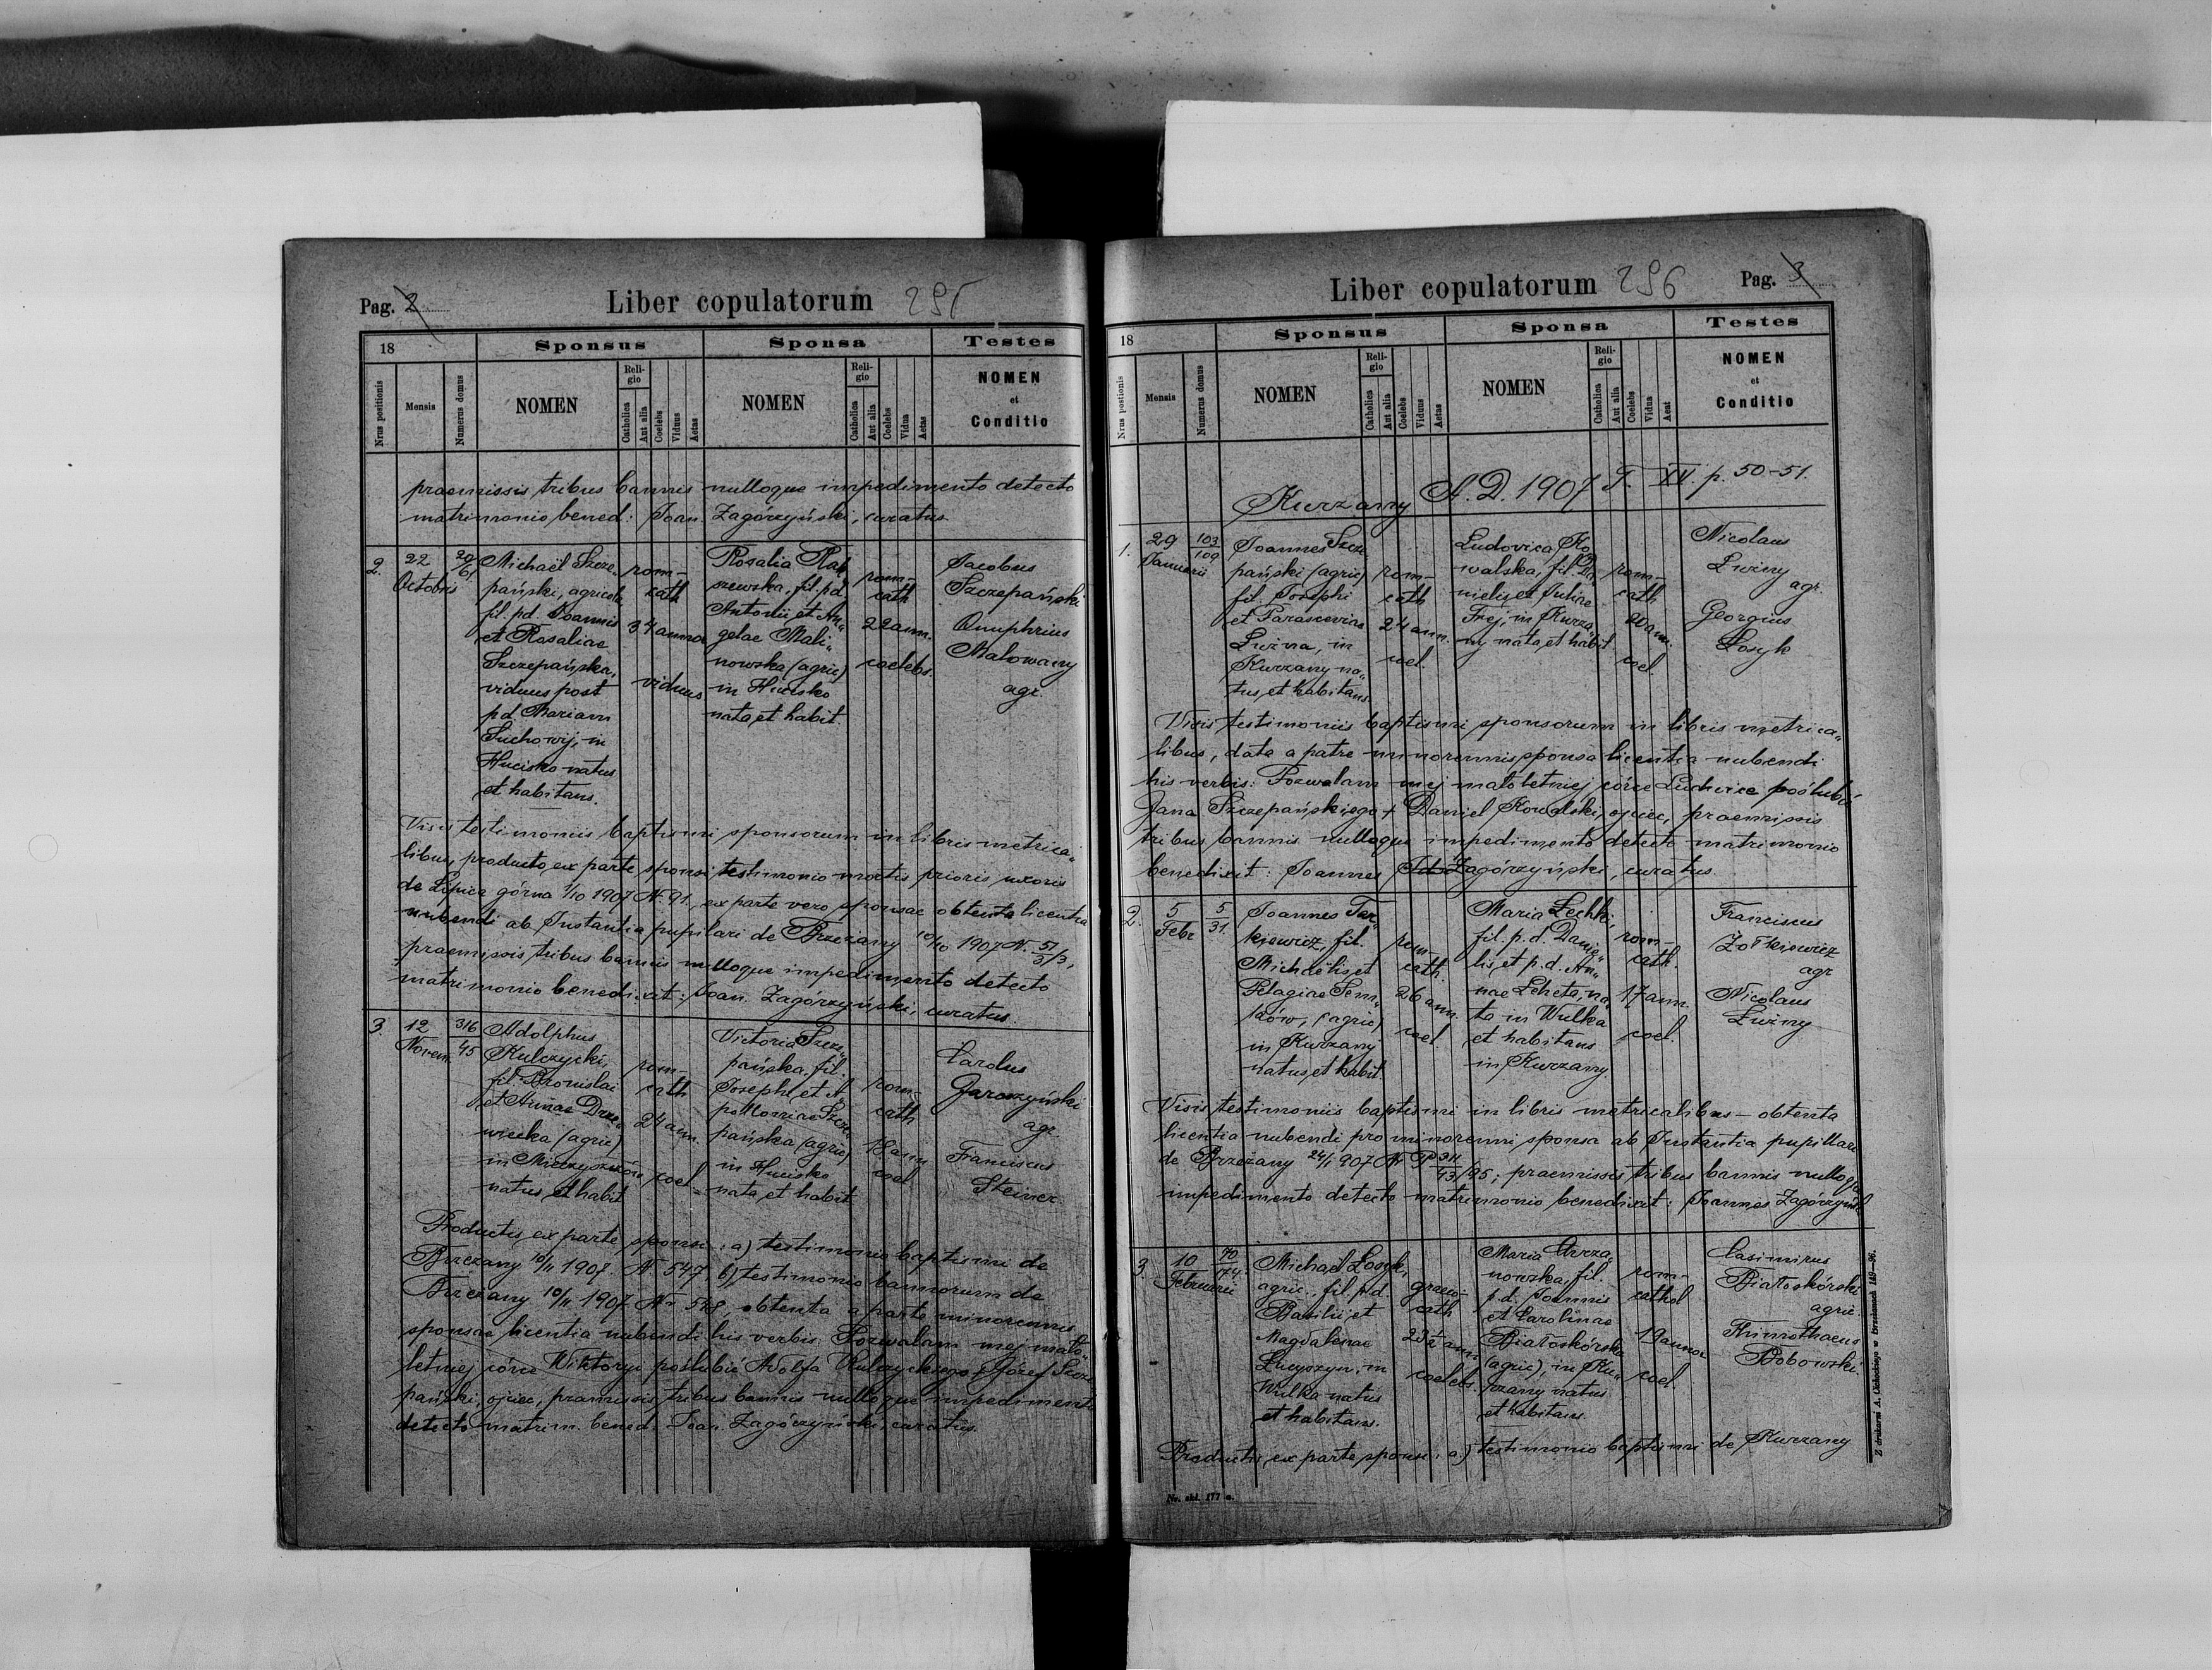 Pag. 2
Liber copulatorum 295
18
Sponsus
Sponsa
Testes
Nrus positionis
Mensis
Numerus domus
NOMEN
Religio
Catholica
Aut alia
Coelebs
Viduus
Aetas
NOMEN
Religio
Catholica
Aut alia
Coelebs
Vidua
Aetas
NOMEN
et
Conditio
praemissis tribus bannis nulloque impedimento detecto
matrimonio bened: Joan. Zagórzyński, curatus.
2.
22
Octobris
20
61
Michaël Szcze„
pański, agricola
fil. pd. Joannis
et Rosaliae
Szczepańska,
viduus post
pd. Mariam
Suchowij, in
Hucisko natus
et habitans.
rom-
cath
34 annor
viduus
Rosalia Rasz
szewska, fil. pd.
Antonii et An„
gelae Mali„
nowska (agric)
in Hucisko
nata, et habit
rom-
cath
22 ann.
coelebs.
Jacobus
Szczepański
Onuphrius
Malowany
agr.
Visis testimoniis baptismi sponsorum in libris metrica„
libus, producto, ex parte sponsi testimonio mortis prioris uxoris
de Lipica górna 1/10 1907 N. 91, ex parte vero sponsae obtenta licentia
nubendi ab Instantia pupilari de Brzeżany 10/10 1907 N.
praemissis tribus bannis nulloque impedimento detecto
matrimonio benedixit: Joan. Zagórzyński, curatus.
3.
12
Novem
316
45
Adolphus
Kulczycki,
fil. Bronislai
et Annae Drze„
wiecka (agric)
in Mieczyszczów
natus, et habit
rom-
cath
24 ann.
coel.
Victoria Szcze„
pańska, fil.
Josephi, et A„
polloniae Szcze„
pańska (agric)
in Hucisko
nata, et habit
rom-
cath
18 ann
coel
Carolus
Garczyński
agr.
Franciscus
Steiner
Productis, ex parte sponsi: a) testimonio baptismi de
Brzeżany 10/11 1907. N 547, b) testimonio bannorum de
Brzeżany 10/11 1907. Nr 548, obtenta a parte minorennis
sponsae licentia nubendi his verbis: Pozwalam mej mało„
letniej córce Wiktoryi poślubić Adolfa Kulczyckiego + Józef Szcze
pański, ojciec, praemissis tribus bannis nulloque impedimento
detecto matrim. bened. Joan. Zagórzyński, curatus.
Liber copulatorum 296
Pag. 3
18
Sponsus
Sponsa
Testes
Nrus postionis
Mensis
Numerus domus
NOMEN
Religio
Catholica
Aut alia
Coelebs
Viduus
Aetas
NOMEN
Religio
Catholica
Aut alia
Coelebs
Vidua
Aeat
NOMEN
et
Conditio
Kurzany A.D. 1907 T. XV p. 50-51.
1.
29
Januarii
103
109
Joannes Szcze
pański (agric)
fil. Josephi
et Parascevias
Luźna, in
Kurzany na„
tus, et habitans
rom-
cath
24 ann.
coel.
Ludovica Ko
walska, fil. Da
nielis et Juliae
Frej, in Kurza„
ny nata, et habit
rom-
cath
20 ann.
coel.
Nicolaus
Luźny
agr.
Georgius
Łosyk
Visis testimoniis baptismi sponsorum in libris metrica„
libus, data a patre minorennis sponsa licentia nubendi
his verbis: Pozwalam mej małoletniej córce Ludwice poślubić
Jana Szczepańskiego + Daniel Kowalski, ojciec, praemissis
tribus bannis nulloque impedimento detecto matrimonio
benedixit: Joannes Zagórzyński, curatus.
2.
5
Febr
5
31.
Joannes
kiewicz, fil.
Michaëlis, et
Pelagiae Sem„
ków, (agric)
in Kurzany
natus, et habit.
rom-
cath
26 ann.
coel.
Maria Lechki,
fil. p.d. Danie„
lis, et p.d. An„
nae Leheta, na„
ta in Wulka
et habitans
in Kurzany.
rom-
cath.
17 ann.
coel.
Franciscus
Żołkiewicz
agr
Nicolaus
Luźny
Visis testimoniis baptismi in libris metricalibus – obtenta
licentia nubendi pro minorenni sponsa ab Instantia pupillari
de Brzeżany 24/1 907 Nr P; praemissis tribus bannis nulloque
impedimento detecto matrimonio benedixit: Joannes Zagórzyński
3.
10
Februarii
70
74
Michaël Łosyk,
agric., fil. p.d.
Basilii, et
Magdalenae
in
Wulka natus
et habitans.
graeco-
cath
23½ ann
coelebs.
Maria Chrza„
nowska, fil.
p.d. Joannis
et Carolinae
Białoskórska
(agric), in Ku„
rzany natus
et habitans.
rom-
cathol
19 annor
coel
Casimirus
Białoskórski
agric.
Thimothaeus
Bobowski
Productis, ex parte sponsi: a.) testimonio baptismi de Kurzany
Nr. obl. 177 a.
Z drukarni A. Cichockiego w Brzeżanach 149—96.